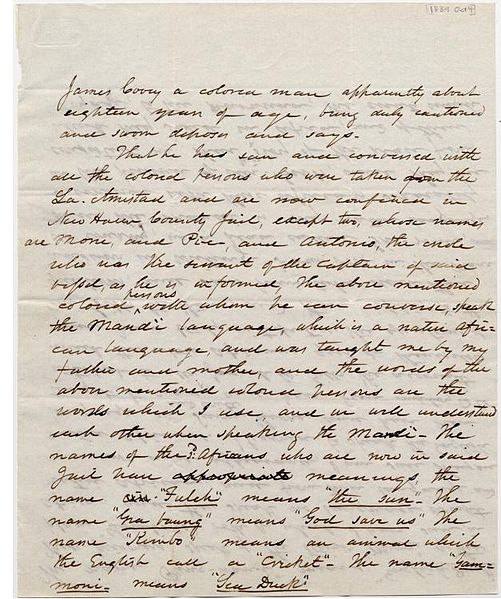 [1839 Oct]
James Covey a colored man apparently about
eighteen years of age, being duly cautioned
and sworn deposes and says.
That he has seen and conversed with
all the colored persons who were taken from the
La. Amistad and are now confined in
New Haven County Jail, except two, whose names
are Mone, and Pie- and Antonio, the creole
who was the servant of the Captain of said
vessel, as he is informed, the above mentioned
colored persons with whom he can converse, speak
the Mandi language, which is a native Afri-
can language, and was taught me by my
father and mother, and the words of the
above mentioned colored persons are the
words which I use, and we well understand
each other when speaking the Mandi- The
names of the Africans who are now in said
Jail have appropriate meanings, the
name "Fuleh" means "the sun"- The
name "Gna baung" means "God save us" The
name "Kimbo" means an animal which
the English call a "Cricket"- The name "Fam-
moni- means "Sea Duck"